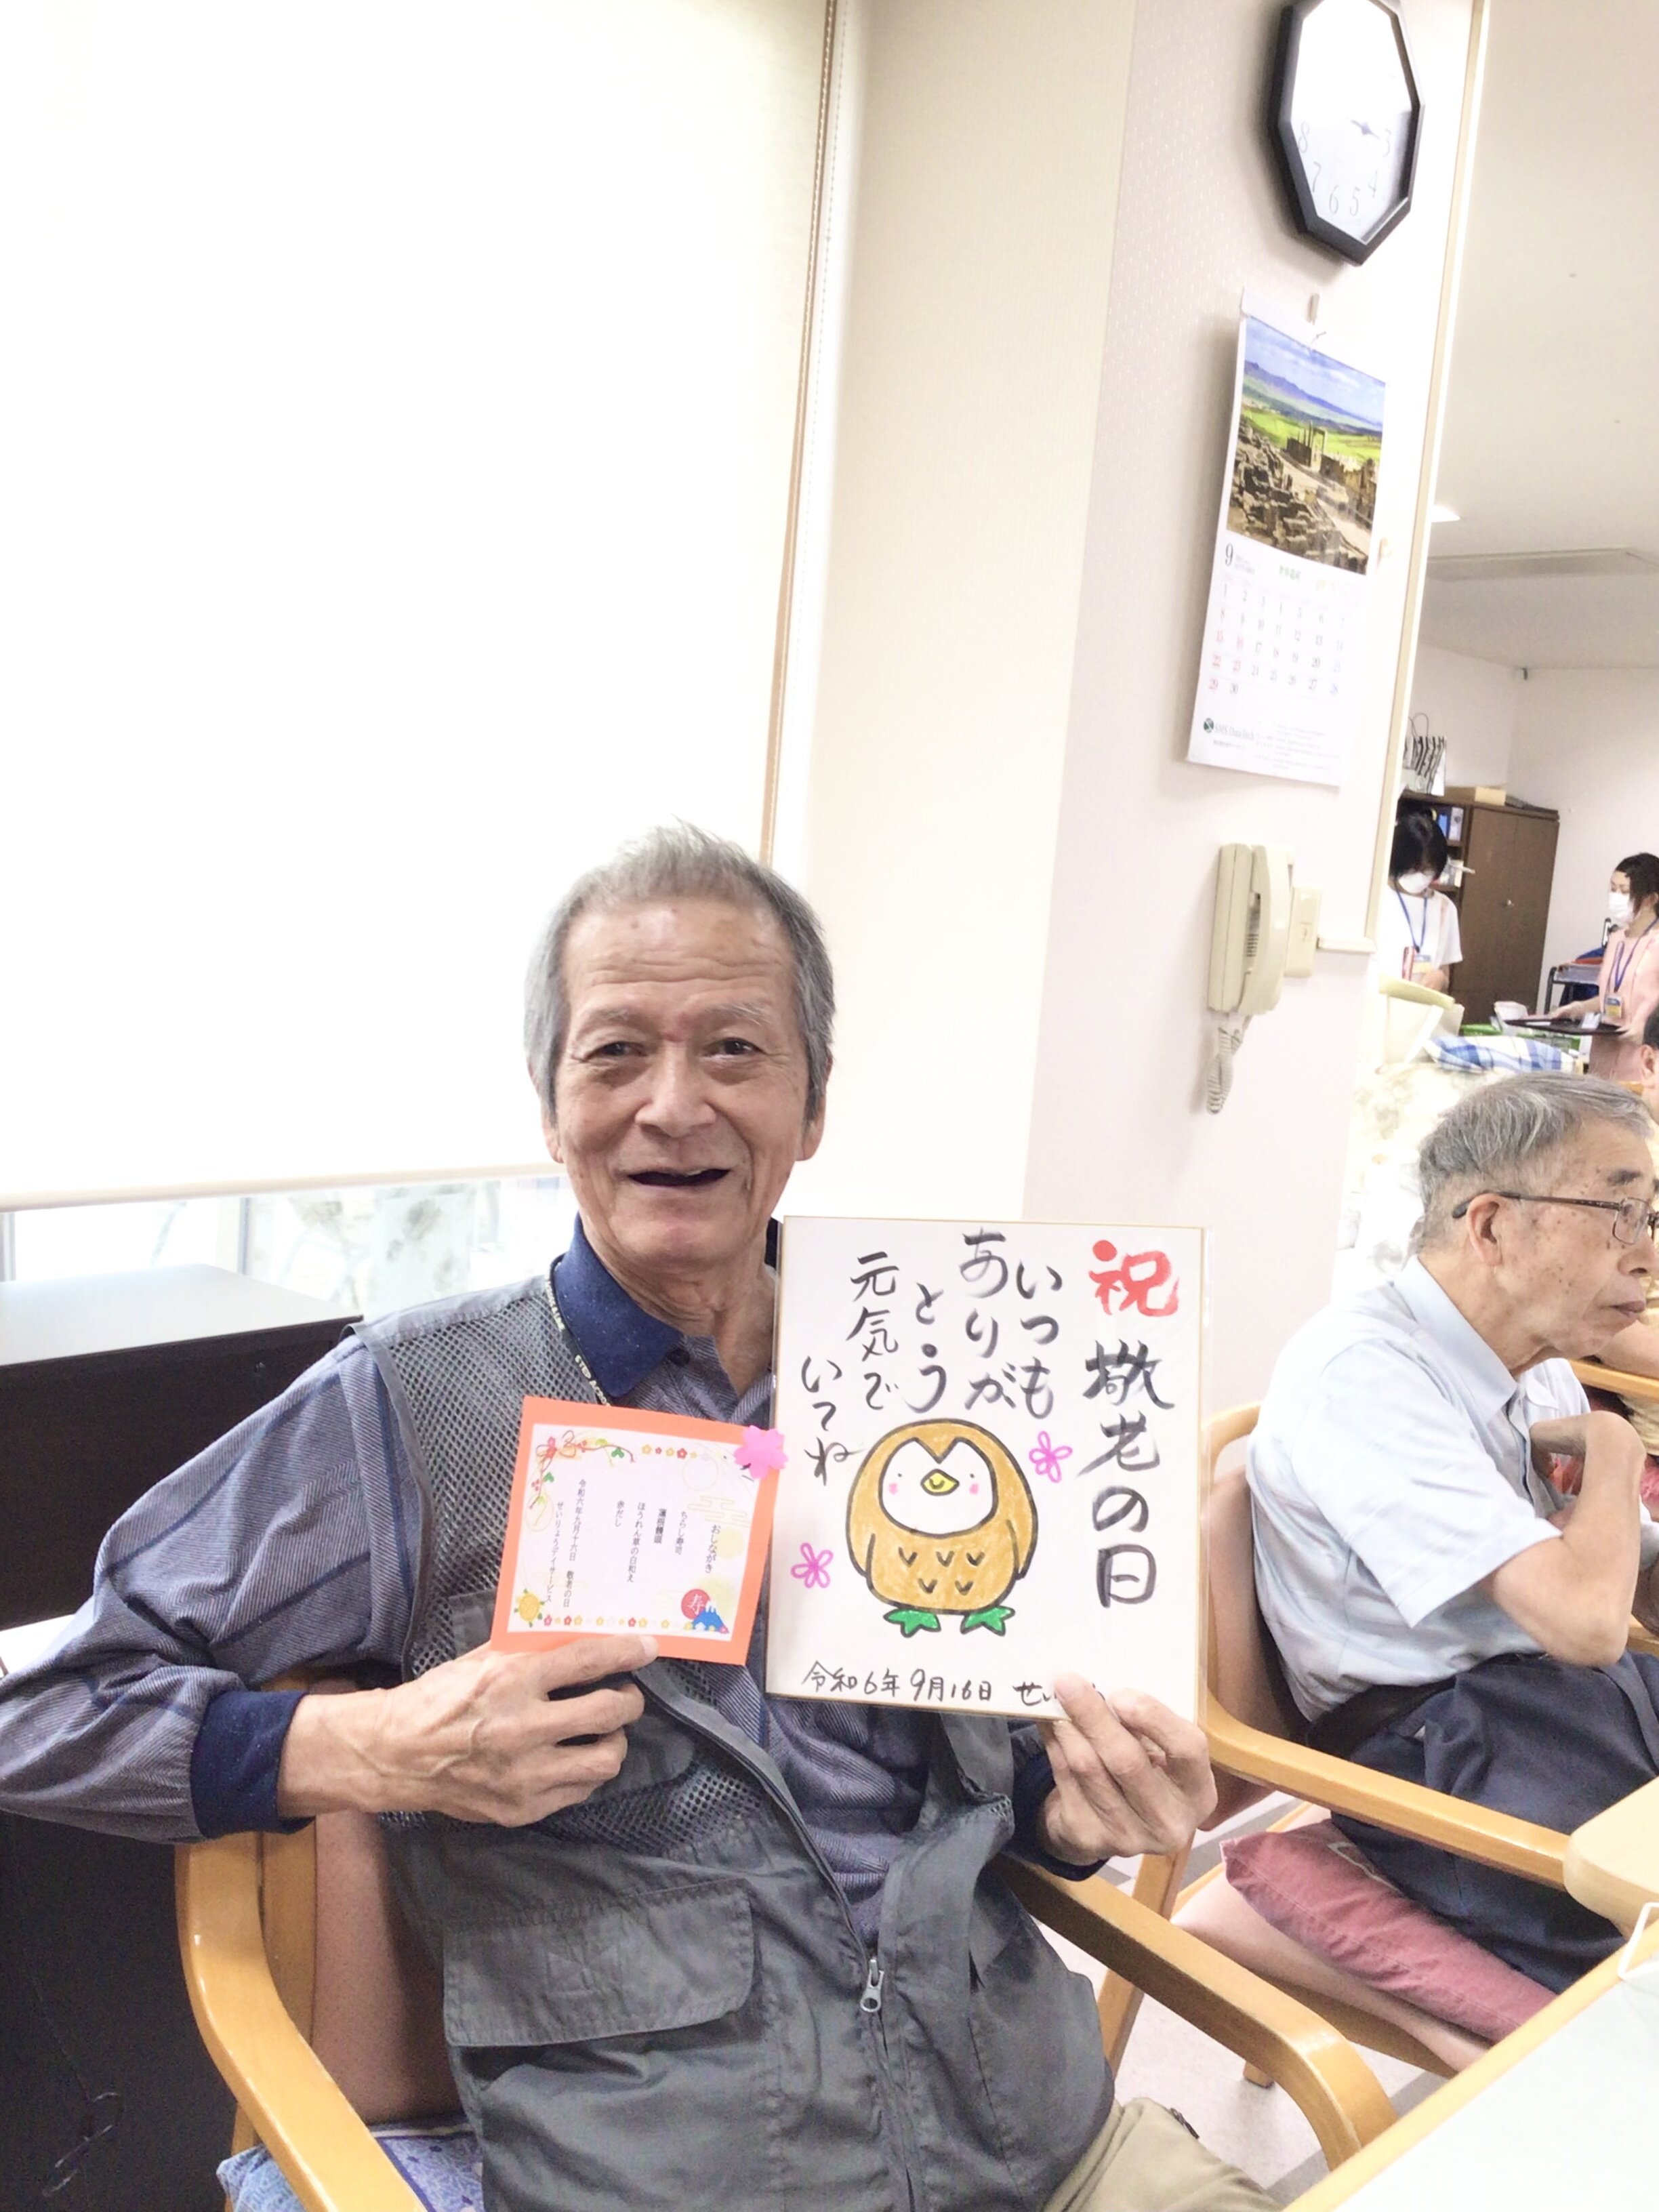 祝 敬老の日
いつも
ありが
とう
元気で
いてね
令和6年9月16日
おしながき
ちらし寿司
蓮根饅頭
ほうれん草の白和え
赤だし
令和六年九月十六日 敬老の日
せいりょうデイサービス
寿
3
4
5
6
7
8
9
1 2 3 4 5 6 7
8 9 10 11 12 13 14
15 16 17 18 19 20 21
22 23 24 25 26 27 28
29 30